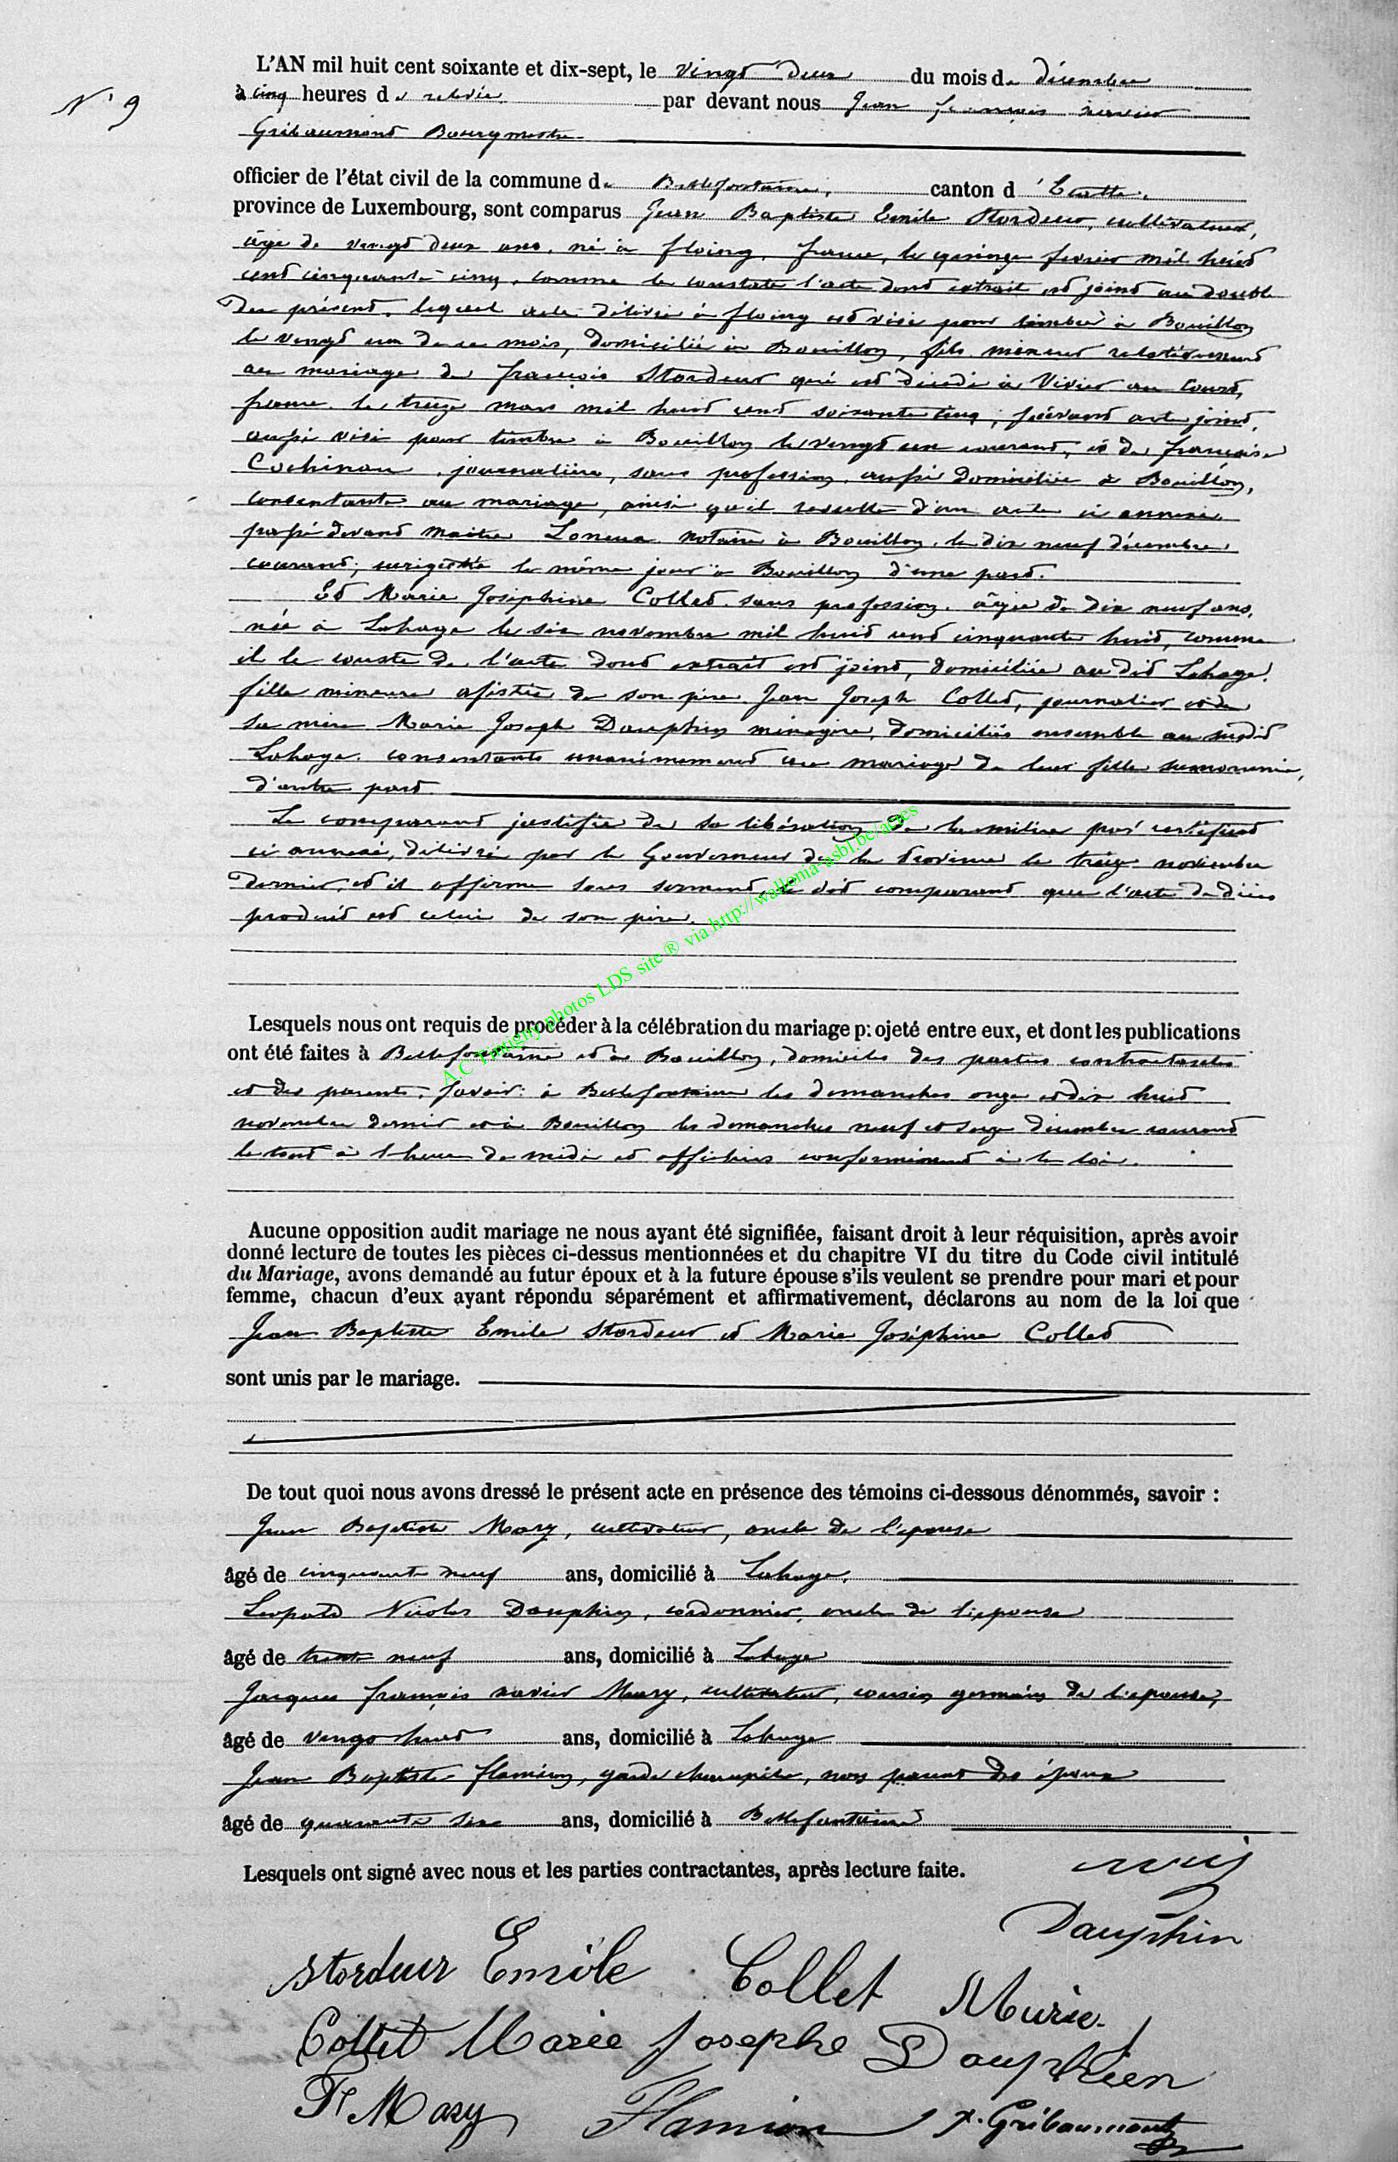 N° 9
L'AN mil huit cent soixante et dix-sept, le vingt deux du mois de décembre
à cinq heures de relevée par devant nous Jean françois xavier
Gribaumont Bourgmestre
officier de l'état civil de la commune de Bellefontaine, canton d'Etalle,
province de Luxembourg, sont comparus Jean Baptiste Emile Stordeur, cultivateur,
âgé de vingt deux ans, né à floing, france, le quinze fevrier mil huit
cent cinquante-cinq, comme le constate l'acte dont extrait est joint au double
du présent, lequel acte délivré à floing est visé pour timbre à Bouillon
le vingt un de ce mois, domicilié à Bouillon, fils mineur relativement
au mariage de françois Stordeur qui est décédé à Vivier au Court,
france, le treize mars mil huit cent soixante cinq, suivant acte joint,
aussi visé pour timbre à Bouillon le vingt un courant, et de françoise
Cochinau, journalière, sans profession, aussi domiciliée à Bouillon,
consentante au mariage, ainsi qu'il resulte d'un acte ci annexé
passé devant maitre notaire à Bouillon, le dix neuf décembre
courant, enrégistré le même jour à Bouillon d'une part.
Et Marie Joséphine Collet sans profession, âgée de dix neuf ans,
née à Lahage le six novembre mil huit cent cinquante huit, comme
il le conste de l'acte dont extrait est joint, domiciliée au dit Lahage,
fille mineure assistée de son père Jean Joseph Collet, journalier et de
sa mère Marie Joseph Dauphin ménagère, domiciliés ensemble au susdit
Lahage, consentants unanimement au mariage de leur fille surnommée,
d'autre part
Le comparant justifie de sa libération de la milice par certificat
ci annexé, délivré par le Gouverneur de la Province le treize novembre
dernier, et il affirme sous serment, le dit comparant que l'acte de décès
produit est celui de son père.
Lesquels nous ont requis de procéder à la célébration du mariage projeté entre eux, et dont les publications
ont été faites à Bellefontaine et à Bouillon, domiciles des parties contractantes
et des parents, savoir: à Bellefontaine les dimanches onze et dix huit
novembre dernier et à Bouillon les dimanches neuf et seize décembre courant
le tout à l'heure de midi et affichées conformément à la loi.
Aucune opposition audit mariage ne nous ayant été signifiée, faisant droit à leur réquisition, après avoir
donné lecture de toutes les pièces ci-dessus mentionnées et du chapitre VI du titre du Code civil intitulé
du Mariage, avons demandé au futur époux et à la future épouse s'ils veulent se prendre pour mari et pour
femme, chacun d'eux ayant répondu séparément et affirmativement, déclarons au nom de la loi que
Jean Baptiste Emile Stordeur et Marie Joséphine Collet
sont unis par le mariage.
De tout quoi nous avons dressé le présent acte en présence des témoins ci-dessous dénommés, savoir :
Jean Baptiste Mary, cultivateur, oncle de l'épouse
âgé de cinquante neuf ans, domicilié à Lahage,
Leopold Nicolas Dauphin, cordonnier, oncle de l'épouse
âgé de trente neuf ans, domicilié à Lahage
Jacques françois xavier Mary, cultivateur, cousin germain de l'épouse,
âgé de vingt huit ans, domicilié à Lahage
Jean Baptiste flamion, garde champêtre, non parent des époux
âgé de quarante six ans, domicilié à Bellefontaine
Lesquels ont signé avec nous et les parties contractantes, après lecture faite.
Dauphin
Stordeur Emile Collet Marie
Collet Marie Josephe Dauphien
Mary Flamion X. Gribaumont
A.C Tintigny photos LDS site ® via http://wallonia-asbl.be/actes